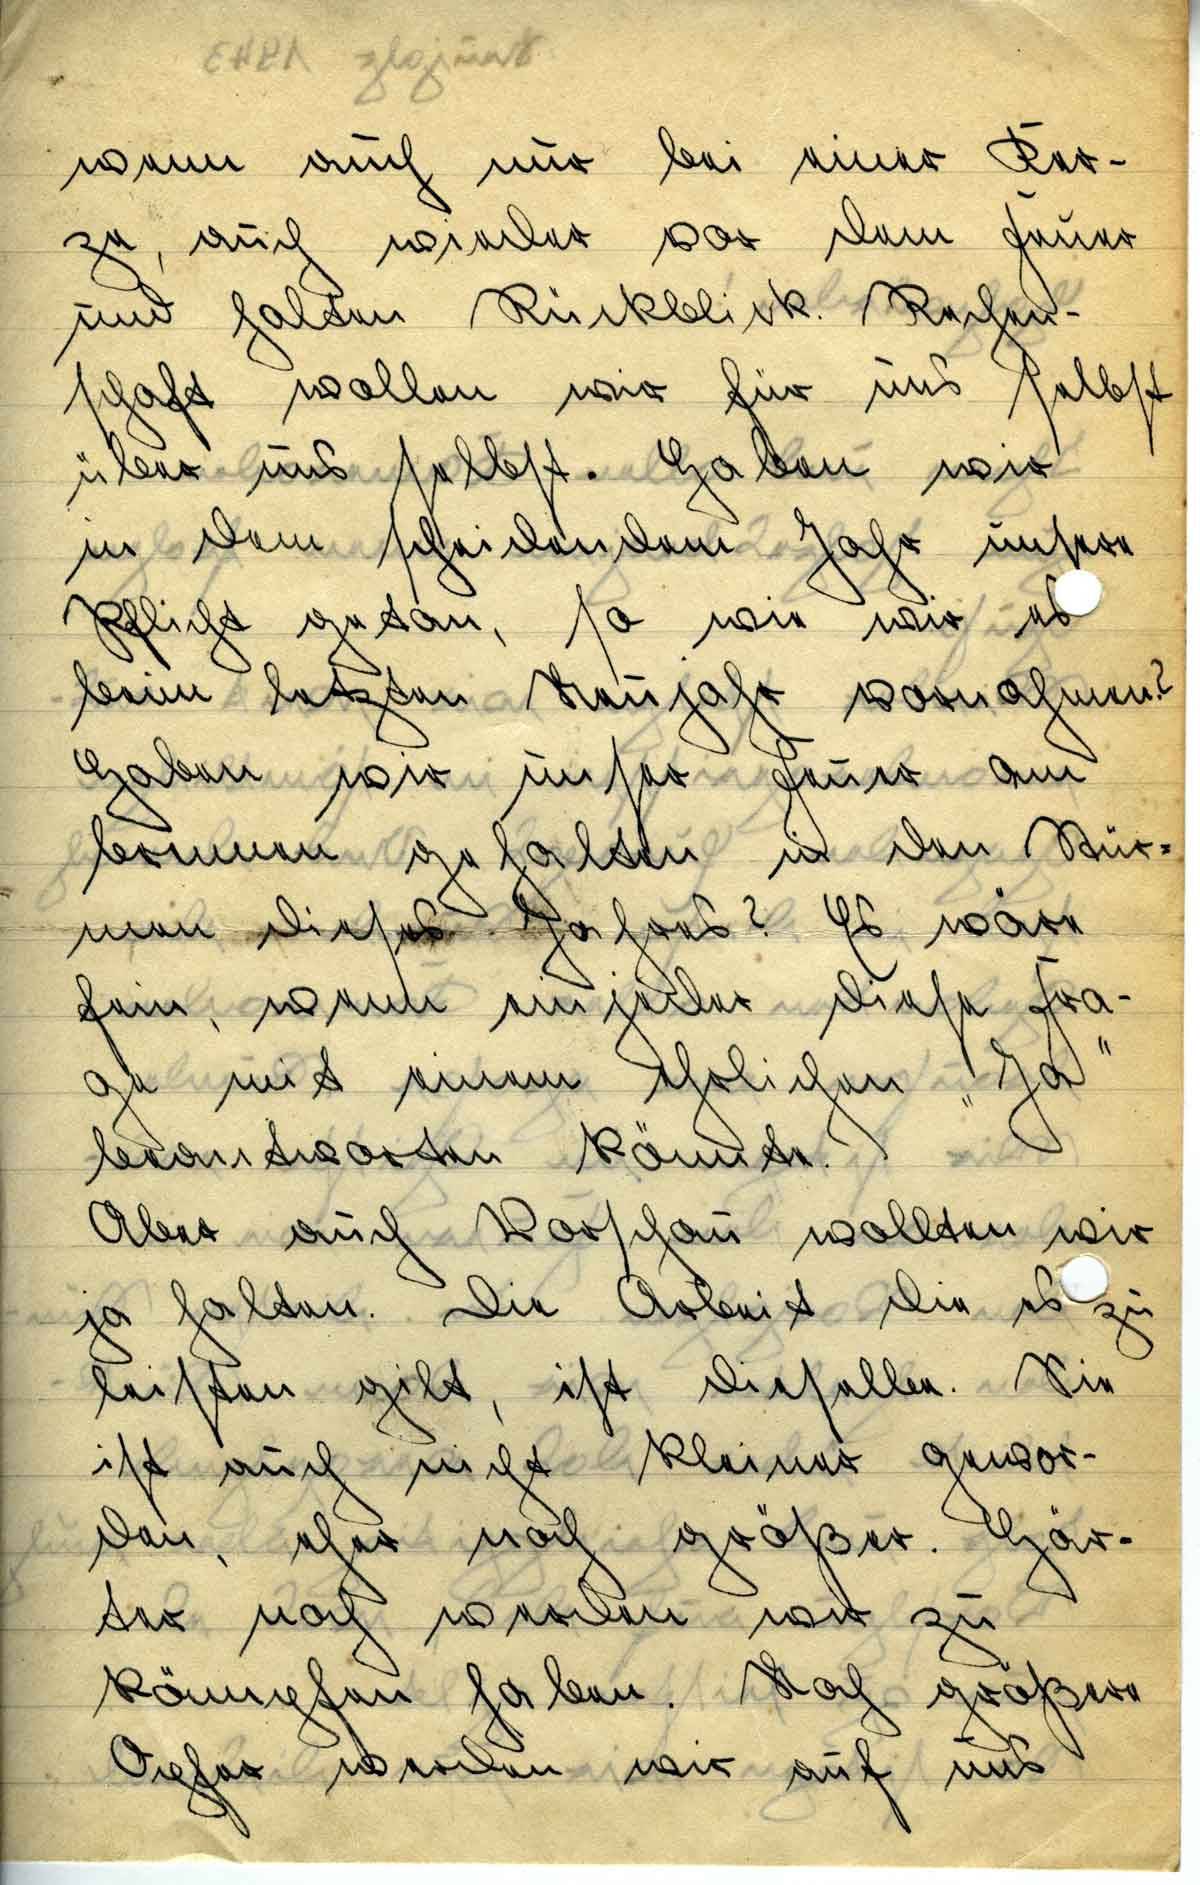 wenn auch nur bei einer Ker-
ze, auch wieder vor dem Feuer
und halten Rückblick. Rechen-
schaft wollen wir für uns selbst
über uns selbst. Haben wir
in dem scheidendem Jahr unsere
Pflicht getan, so wie wir es
beim letzten Neujahr vornahmen?
Haben wir unser Feuer am
brennen gehalten in den Stür-
men dieses Jahres? Es wäre
fein, wenn ein jeder diese Fra-
ge mit einem ehrlichen „Ja"
beantworten könnte.
Aber auch Vorschau wollten wir
ja halten. Die Arbeit die es zu
leisten gilt, ist dieselbe. Sie
ist auch nicht kleiner gewor-
den, eher noch größer. Här-
ter noch werden wir zu
kämpfen haben. Noch größere
Opfer werden wir auf uns